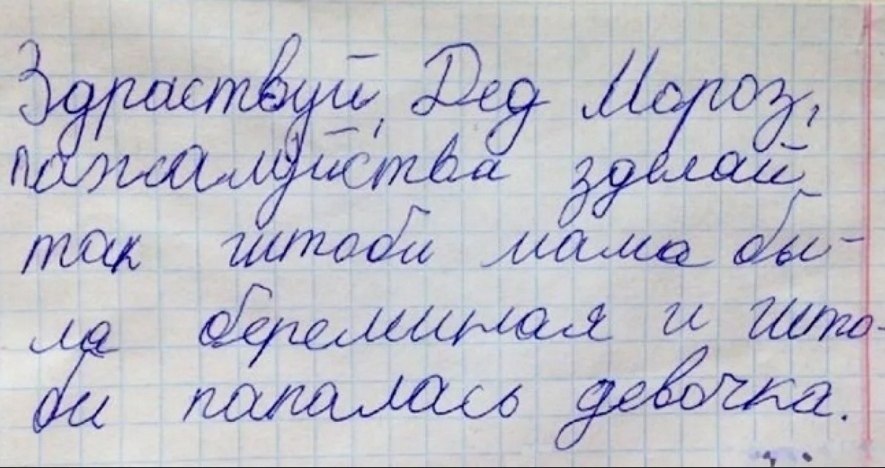 Здраствуй, Дед Мороз,
пажалуйства зделай
так штоби мама бы-
ла береминая и што-
би папалась девочка.